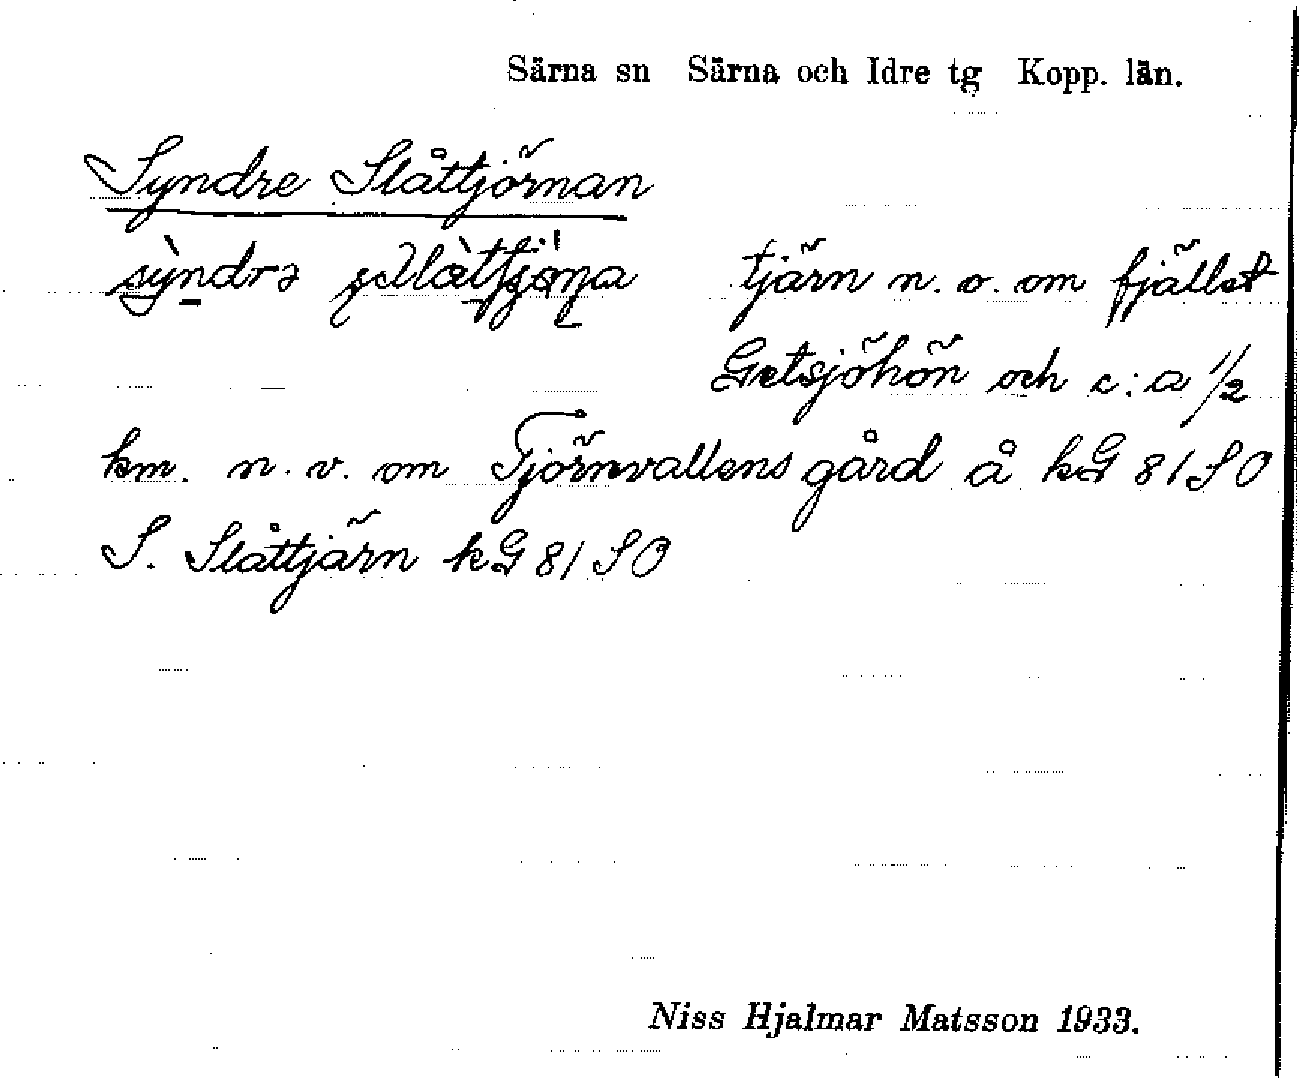 Särna sn Särna och Idre tg Kopp. län.
Syndre Slåttjörnan
tjärn n. v. om fjället
Getsjöhön och c:a 1/2
km. n. v. om Tjörnvallens gård å kG 81 SO
S. Slåttjärn kG 81 SO
Niss Hjalmar Matsson 1933.